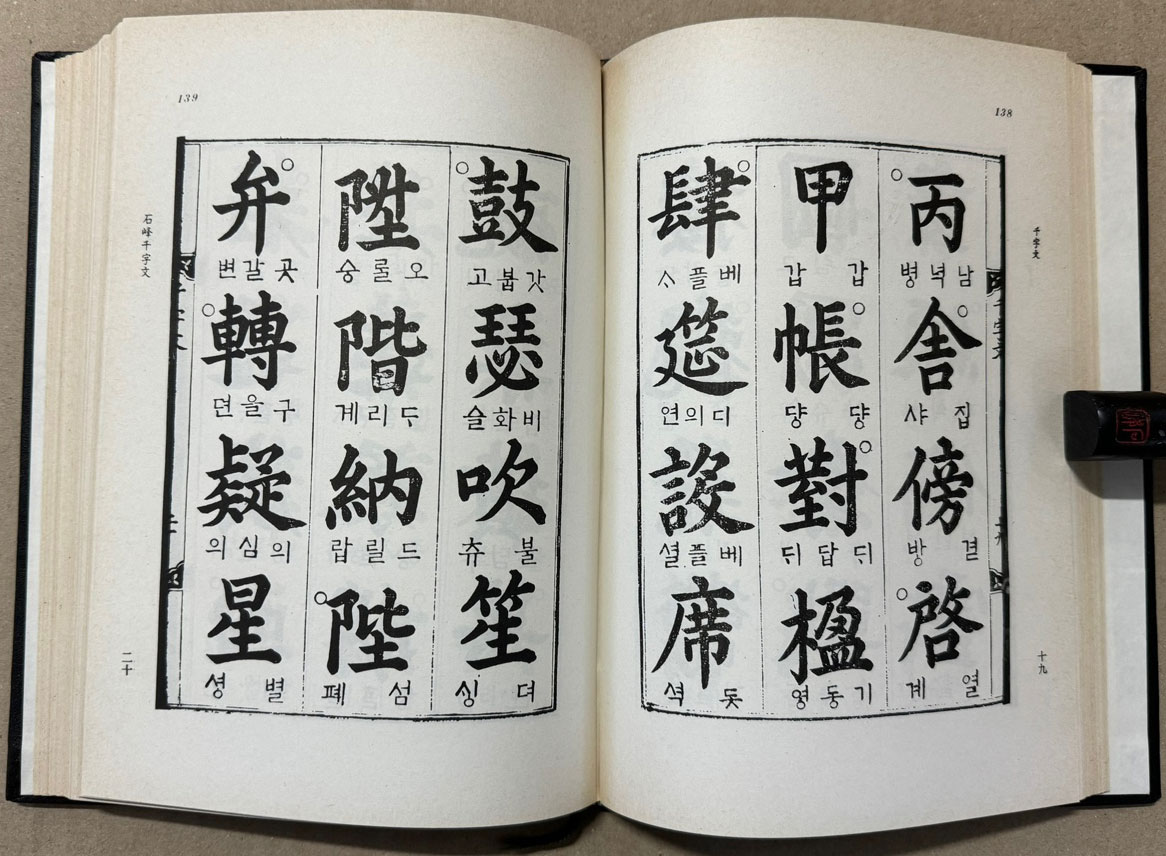 138
千字文
丙
남녁병
舍
집샤
傍
겯방
啓
열계
甲
갑갑
帳
댱댱
對
ᄃᆡ답ᄃᆡ
楹
기동영
肆
베플ᄉᆞ
筵
디의연
設
베플셜
席
돗셕
十九
139
石峰千字文
鼓
갓붑고
瑟
비화슬
吹
불츄
笙
뎌싱
陞
오롤승
階
ᄃᆞ리계
納
드릴랍
陛
섬폐
弁
곳갈변
轉
구을뎐
疑
의심의
星
별셩
二十